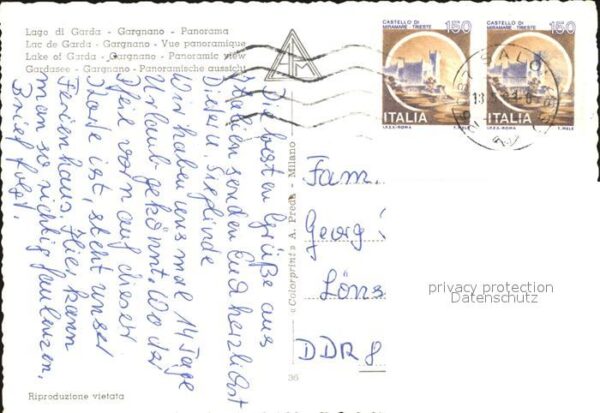 Lago di Garda - Gargnano - Panorama
Lac de Garda - Gargnano - Vue panoramique
Lake of Garda - Gargnano - Panoramic view
Gardasee - Gargnano - Panoramische aussicht
CASTELLO DI
MIRAMARE TRIESTE
150
ITALIA
I.P.Z.S.-ROMA
CASTELLO DI
MIRAMARE TRIESTE
150
ITALIA
I.P.Z.S.-ROMA
SALO
Die besten Grüße aus
Italien senden Euch herzlichst
Dieter u. Sieglinde
Wir haben uns mal 14 Tage
Urlaub gekönnt. Wo der
Pfeil vorn auf dieser
Karte ist, steht unser
Ferienhaus. Hier kann
man so richtig faulenzen.
Brief folgt.
«Colorprint» A. Preda - Milano
36
Fam.
Georg
Löns
DDR 8
privacy protection
Datenschutz
Riproduzione vietata